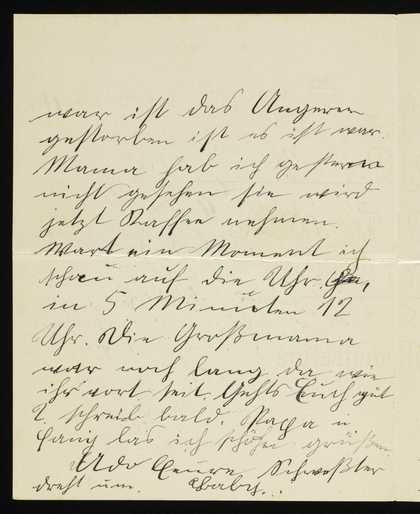 war ist das Angerer
gestorben ist es ist war.
Mama hab ich gestern
nicht gesehen sie wird
jetzt Kaffee nehmen.
Wart ein Moment ich
schau auf die Uhr.
in 5 Minuten 12
Uhr. Die Großmama
war noch lang da wie
ihr vort seit. Gehts Euch gut
? schreib bald. Papa u
las ich schön grüßen
Udo Eeure Schweßter
dreht um. Baby.